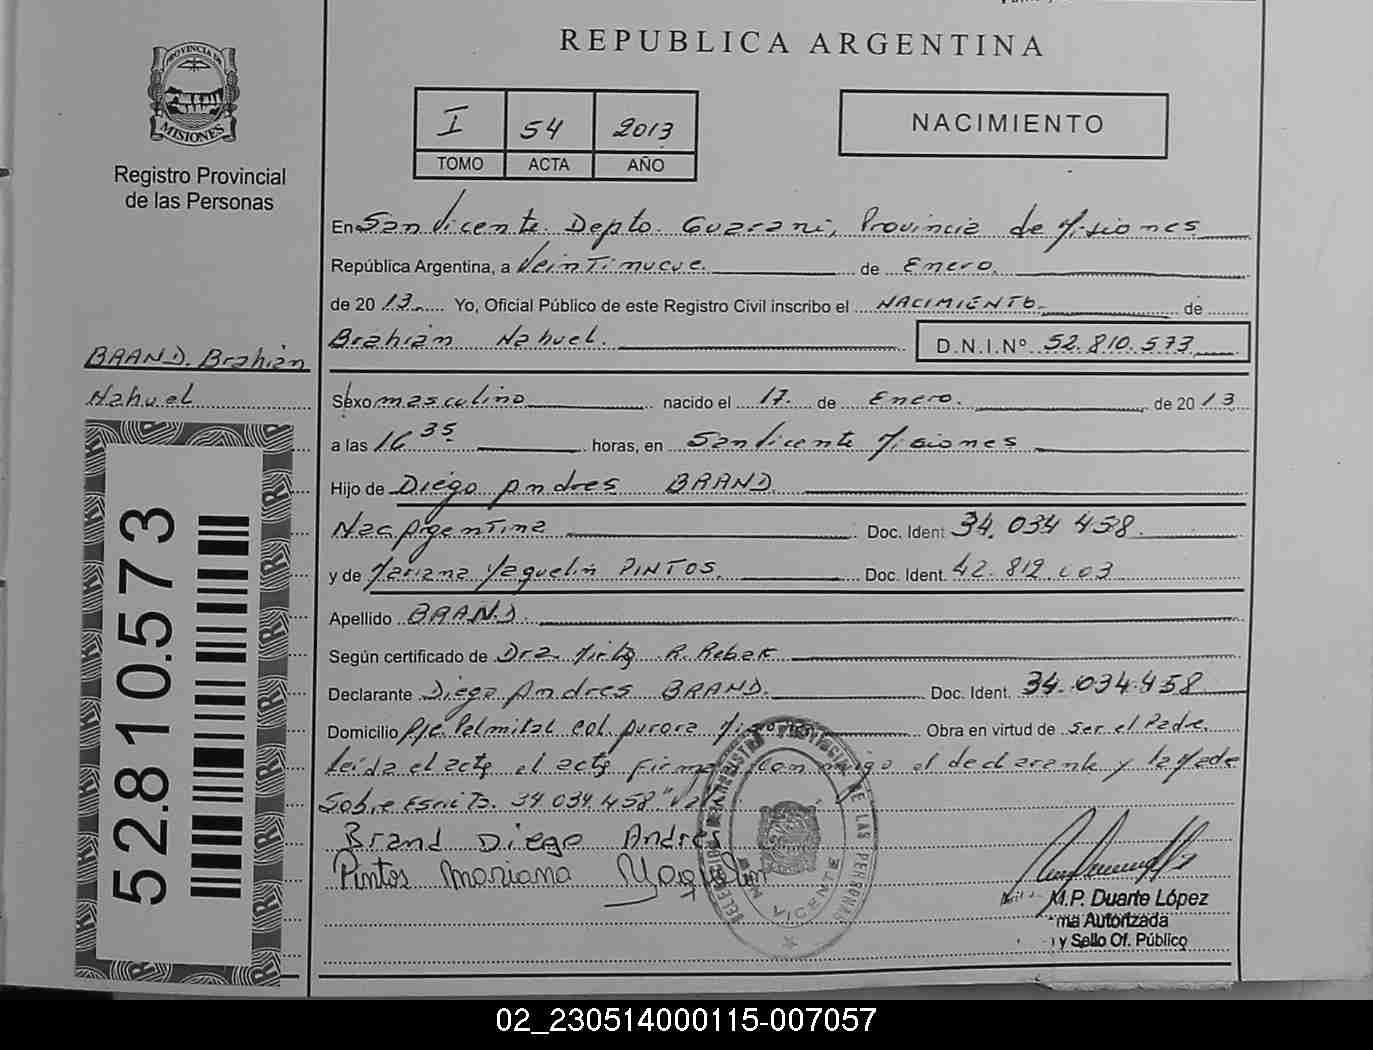 REPUBLICA ARGENTINA
PROVINCIA DE
MISIONES
Registro Provincial
de las Personas
I 54 2013
TOMO ACTA AÑO
NACIMIENTO
En San Vicente Depto. Guarani, Provincia de Misiones
República Argentina, a Veintinueve de Enero
de 2013 Yo, Oficial Público de este Registro Civil inscribo el NACIMIENTO de
Brahian Nahuel. D.N.I.Nº 52.810.573
BRAND. Brahian
Nahuel
Sexo masculino nacido el 17. de Enero. de 2013
a las 16 35 horas, en San Vicente Misiones
Hijo de Diego Andres BRAND
Nac Argentina Doc. Ident 34.034 458
y de Mariana Yaquelin PINTOS. Doc. Ident. 42.812.003
Apellido BRAND
Según certificado de Dra. Mirta R. Rebak
Declarante Diego Andres BRAND. Doc. Ident. 34.034.458
Domicilio Pje. Palmital Col. Aurora Obra en virtud de Ser el Padre
Leida el acta el acta Firma con migo el declarante y la Made
Sobre Escrito. 34 034 458 "Vale
Brand Diego Andres
Pintos Mariana Yaquelin
SAN VICENTE
M.P. Duarte López
ma Autorizada
y Sello Of. Público
52.810.573
02_230514000115-007057